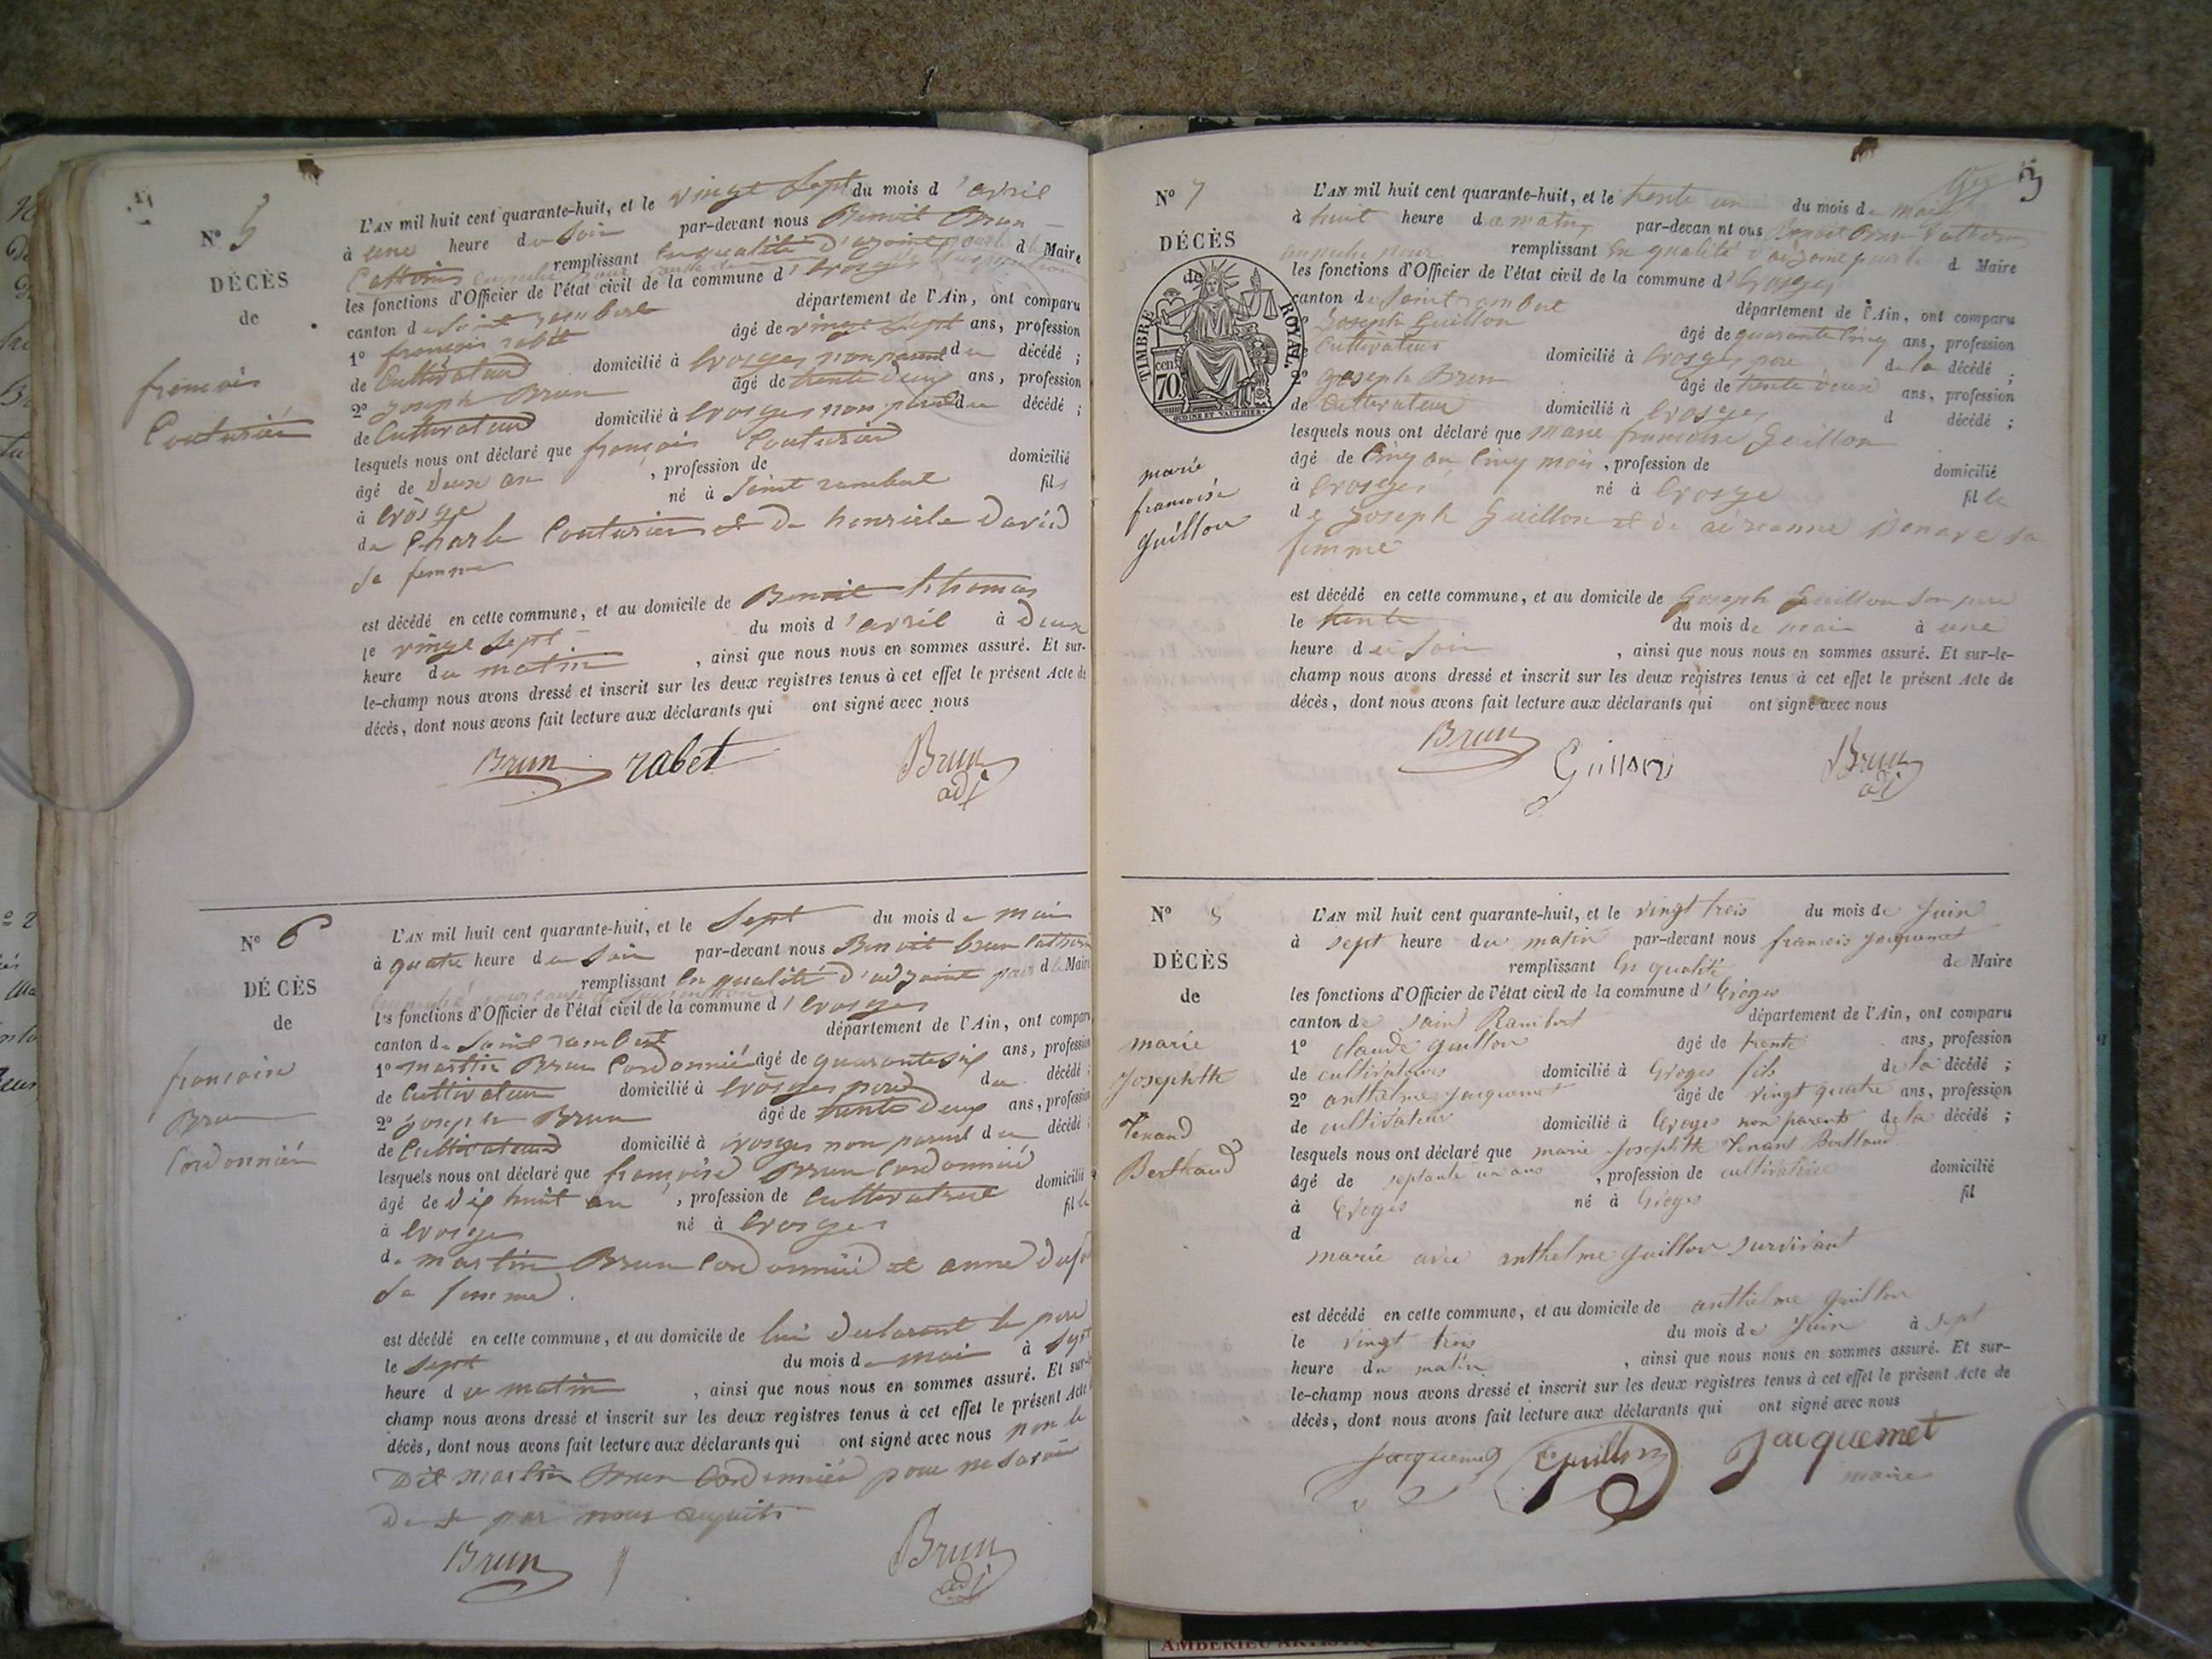 N° 5
DÉCÈS
de
françois
Couturier
L'AN mil huit cent quarante-huit, et le vingt Sept du mois d'avril
à une heure du Soir par-devant nous Benoit Brun
remplissant en qualité d'adjoint pour le d Maire
les fonctions d'Officier de l'état civil de la commune d'
canton de Saint rambert département de l'Ain, ont comparu
1° françois rabet âgé de vingt Sept ans, profession
de Cultivateur domicilié à non parent du décédé ;
2° joseph Brun âgé de trente deux ans, profession
de Cultivateur domicilié à non parent du décédé ;
lesquels nous ont déclaré que françois Couturier
âgé de deux an , profession de domicilié
à né à Saint rambert fils
de Charle Couturier et de David
Sa femme
est décédé en cette commune, et au domicile de Benoit thomas
le vingt Sept du mois d'avril à deux
heure du matin , ainsi que nous nous en sommes assuré. Et sur-
le-champ nous avons dressé et inscrit sur les deux registres tenus à cet effet le présent Acte de
décès, dont nous avons fait lecture aux déclarants qui ont signé avec nous
Brun rabet Brun
adj
N° 6
DÉCÈS
de
francoise
Brun
Cordonnier
L'AN mil huit cent quarante-huit, et le Sept du mois de mai
à quatre heure du Soir par-devant nous Benoit brun
remplissant en qualité d'adjoint pour d le Maire
les fonctions d'Officier de l'état civil de la commune d'
canton de Saint rambert département de l'Ain, ont comparu
1° martin Brun Cordonnier âgé de quarante six ans, profession
de Cultivateur domicilié à père du décédé ;
2° joseph Brun âgé de trente deux ans, profession
de Cultivateur domicilié à non parent du décédé ;
lesquels nous ont déclaré que françoise Brun Cordonnier
âgé de dix huit an , profession de Cultivatrice domicilié
à né à fille
de martin Brun Cordonnier et anne
Sa femme.
est décédé en cette commune, et au domicile de lui declarant le pere
le Sept du mois de mai à Sept
heure du matin , ainsi que nous nous en sommes assuré. Et sur-le-
champ nous avons dressé et inscrit sur les deux registres tenus à cet effet le présent Acte
décès, dont nous avons fait lecture aux déclarants qui ont signé avec nous non le
Dit martin Brun Cordonnier pour ne Savoir
De ce par nous requis
Brun Brun
adj
3
N° 7
DÉCÈS
de
TIMBRE ROYAL.
70 cen.
OUDINE ET VAUTHIER.
marie
francoise
guillon
L'AN mil huit cent quarante-huit, et le trente un du mois de mai
à huit heure du matin par-devan nt ous Benoit Brun
remplissant en qualité d'adjoint pour le d Maire
les fonctions d'Officier de l'état civil de la commune d'
canton de Saint rambert département de l'Ain, ont comparu
Joseph Guillon âgé de quarante Cinq ans, profession
Cultivateur domicilié à père de la décédé ;
2° joseph Brun âgé de trente deux ans, profession
de Cultivateur domicilié à d décédé ;
lesquels nous ont déclaré que marie francoise Guillon
âgé de Cinq an Cinq mois , profession de domicilié
à né à fille
de Joseph Guillon et de Sa
femme
est décédé en cette commune, et au domicile de Joseph Guillon Son pere
le trente du mois de mai à une
heure du Soir , ainsi que nous nous en sommes assuré. Et sur-le-
champ nous avons dressé et inscrit sur les deux registres tenus à cet effet le présent Acte de
décès, dont nous avons fait lecture aux déclarants qui ont signé avec nous
Brun Guillon Brun
adj
N° 8
DÉCÈS
de
marie
Josephthe
Tenand
Berthaud
L'AN mil huit cent quarante-huit, et le vingt trois du mois de Juin
à sept heure du matin par-devant nous francois jacquemet
remplissant en qualité de Maire
les fonctions d'Officier de l'état civil de la commune d'
canton de saint Rambert département de l'Ain, ont comparu
1° claude guillon âgé de trente ans, profession
de cultivateurs domicilié à fils de la décédé ;
2° anthelme jacquemet âgé de vingt quatre ans, profession
de cultivateur domicilié à non parents de la décédé ;
lesquels nous ont déclaré que marie Josephthe Tenand Berthaud
âgé de septante un ans , profession de cultivatrice domicilié
à né à fil
d
marié avec anthelme guillon survivant
est décédé en cette commune, et au domicile de anthelme guillon
le vingt trois du mois de Juin à sept
heure du matin , ainsi que nous nous en sommes assuré. Et sur-
le-champ nous avons dressé et inscrit sur les deux registres tenus à cet effet le présent Acte de
décès, dont nous avons fait lecture aux déclarants qui ont signé avec nous
Jacquemet Guillon Jacquemet
maire